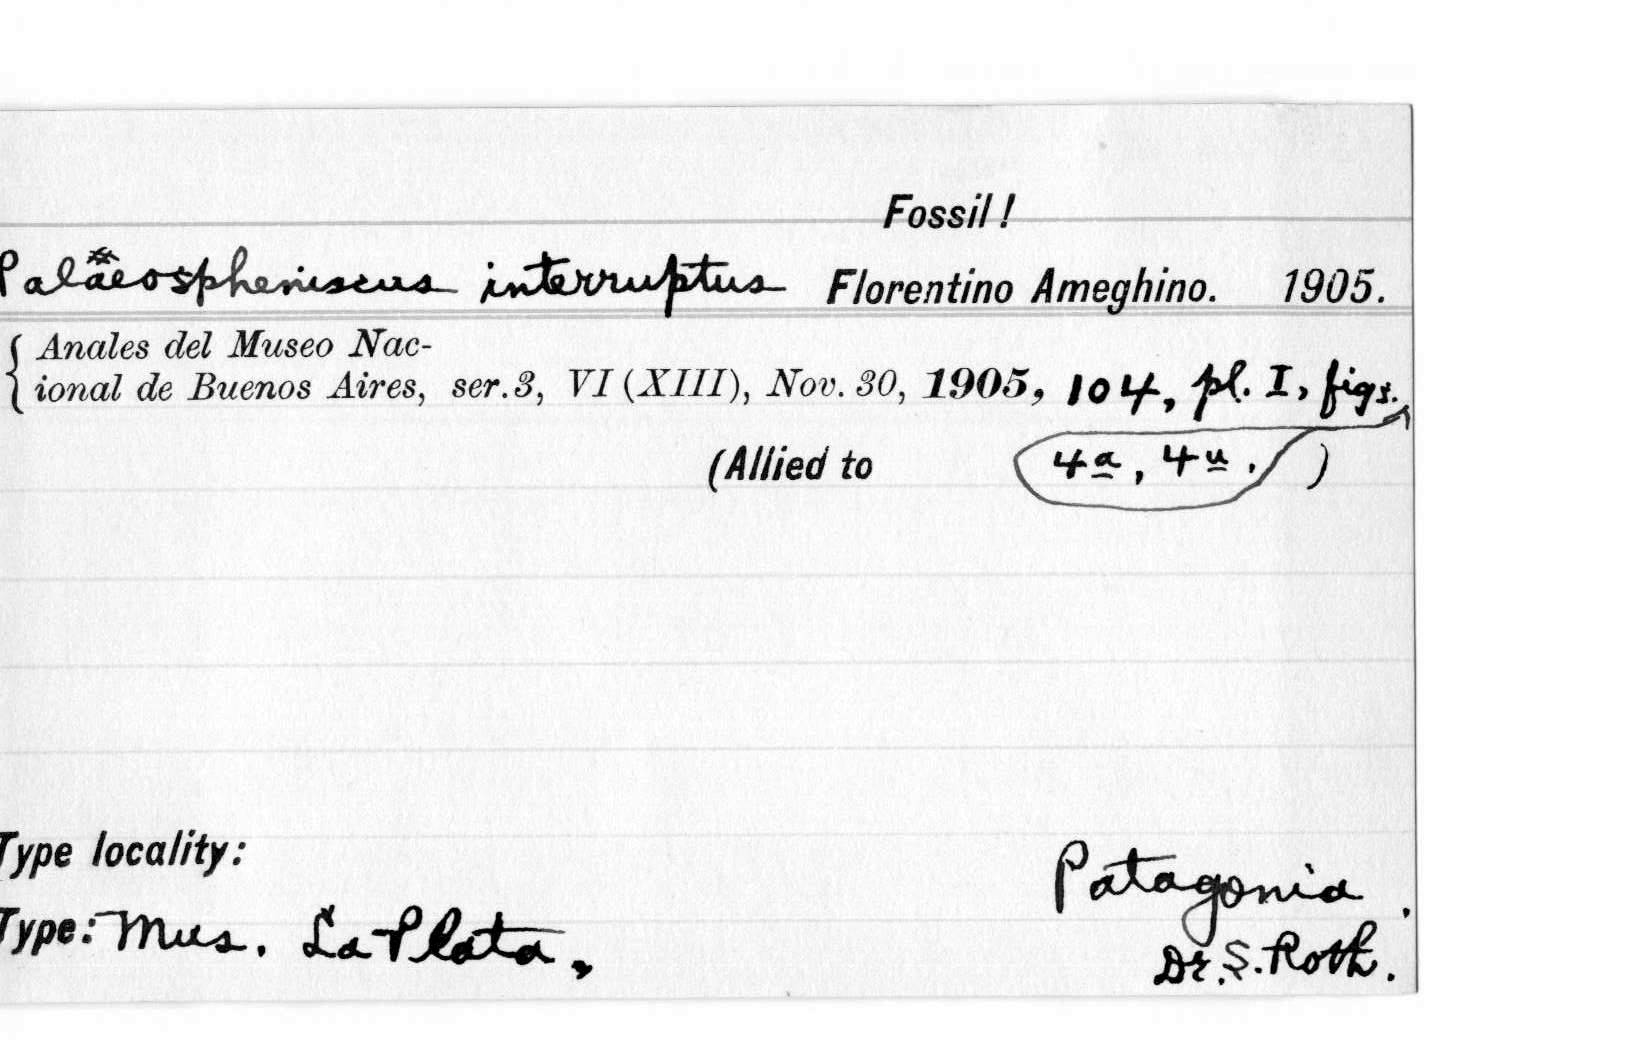 Fossil!
Palaeospheniscus interruptus Florentino Ameghino. 1905.
{ Anales del Museo Nac-
ional de Buenos Aires, ser.3, VI (XIII), Nov. 30, 1905, 104, pl. I, figs.
(Allied to 4a, 4u. )
Type locality: Patagonia.
Type: Mus. La Plata, Dr. S. Roth.